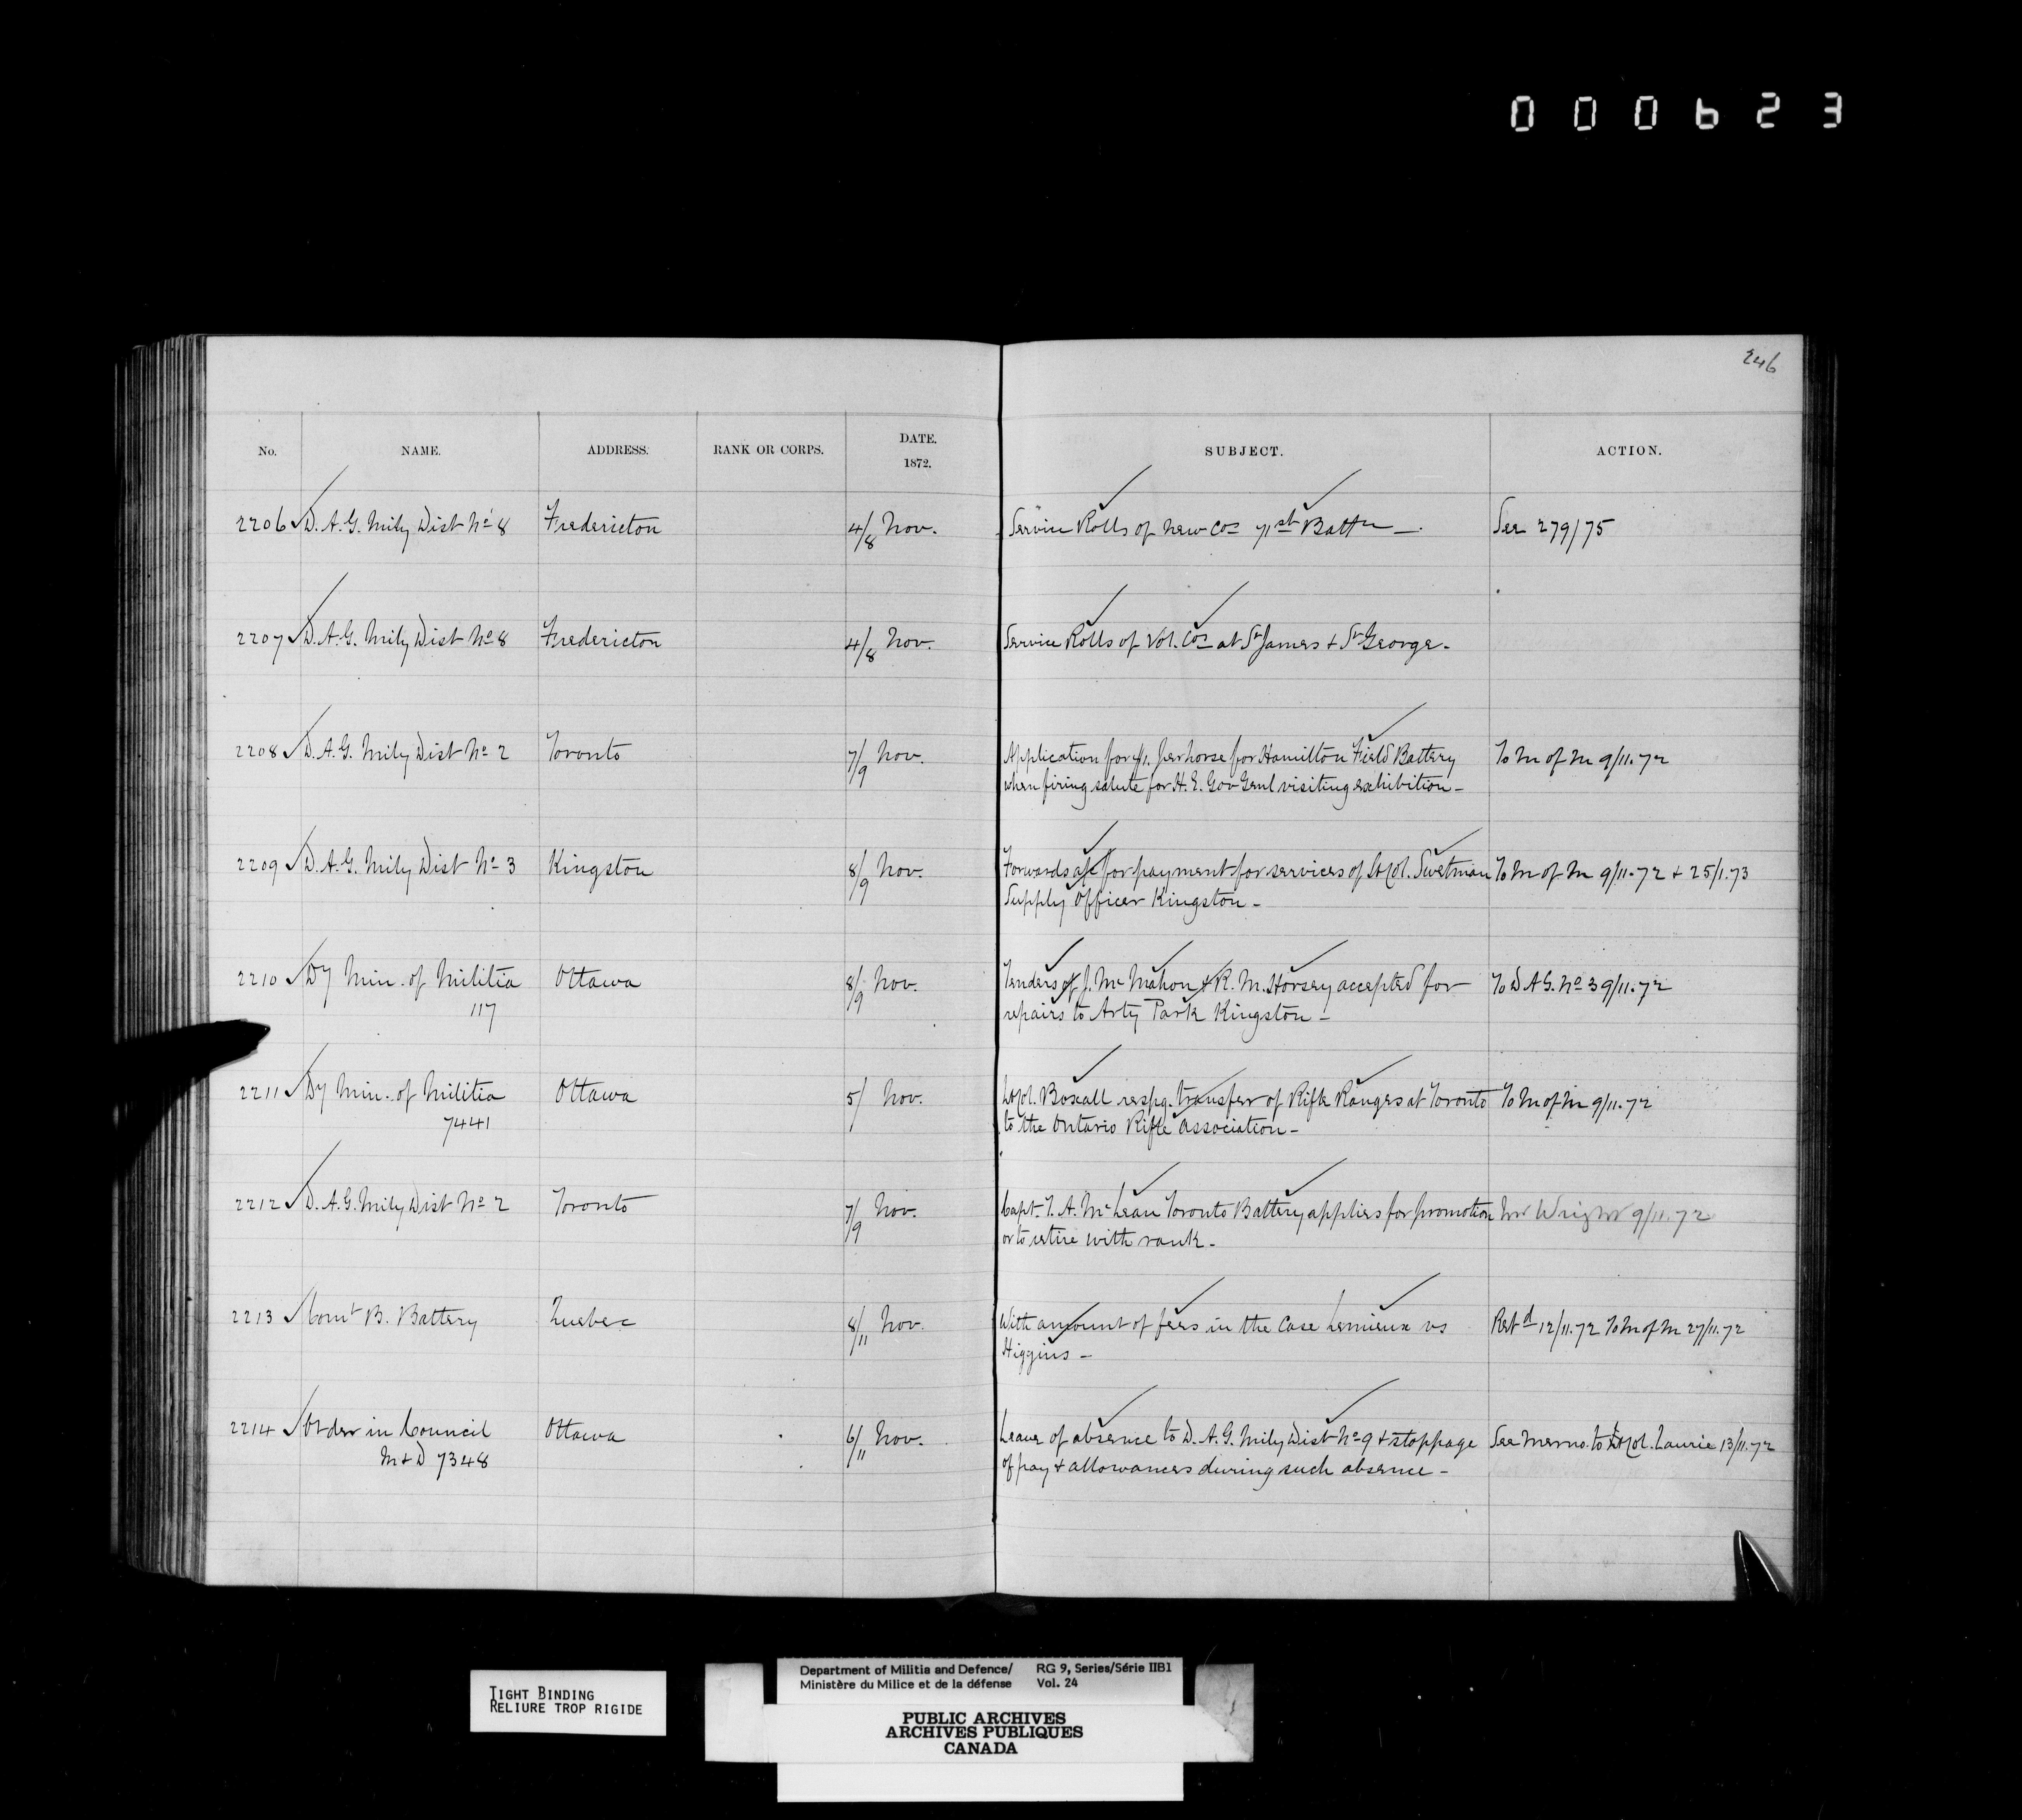 000623
246
No. NAME. ADDRESS. RANK OR CORPS. DATE. 1872. SUBJECT. ACTION.
2206 D. A. G. Mily Dist No 8 Fredericton 4/8 Nov. Service Rolls of new Cos 71st Battn — See 279/75
2207 D. A. G. Mily Dist No 8 Fredericton 4/8 Nov. Service Rolls of Vol. Cos at St James + St George -
2208 D. A. G. Mily Dist No 2 Toronto 7/9 Nov. Application for $1. per horse for Hamilton Field Battery To M of M 9/11.72
when firing salute for H. E. Gov Genl visiting exhibition -
2209 D. A. G. Mily Dist No 3 Kingston 8/9 Nov. Forwards for payment for services of Lt Col. Swetman To M of M 9/11.72 + 25/1.73
Supply Officer Kingston -
2210 Dy Min. of Militia Ottawa 8/9 Nov. Tenders of J. McMahon & R. M. Horsey accepted for To D A G. No 3 9/11.72
117 repairs to Arty Park Kingston -
2211 Dy Min. of Militia Ottawa 5/ Nov. Lt Col. Boxall respg. transfer of Rifle Ranges at Toronto To M of M 9/11.72
7441 to the Ontario Rifle Association -
2212 D. A. G. Mily Dist No 2 Toronto 7/9 Nov. Capt. T. A. McLean Toronto Battery applies for promotion Mr Wright 9/11.72
or to retire with rank -
2213 Comt B. Battery Quebec 8/11 Nov. With amount of fees in the case Lemieux vs Retd 12/11.72 To M of M 27/11.72
Higgins -
2214 Order in Council Ottawa 6/11 Nov. Leave of absence to D. A. G. Mily Dist No 9 + stoppage See memo. to Lt Col. Laurie 13/11.72
M + D 7348 of pay + allowances during such absence -
TIGHT BINDING
RELIURE TROP RIGIDE
Department of Militia and Defence/ RG 9, Series/Série IIB1
Ministère du Milice et de la défense Vol. 24
PUBLIC ARCHIVES
ARCHIVES PUBLIQUES
CANADA